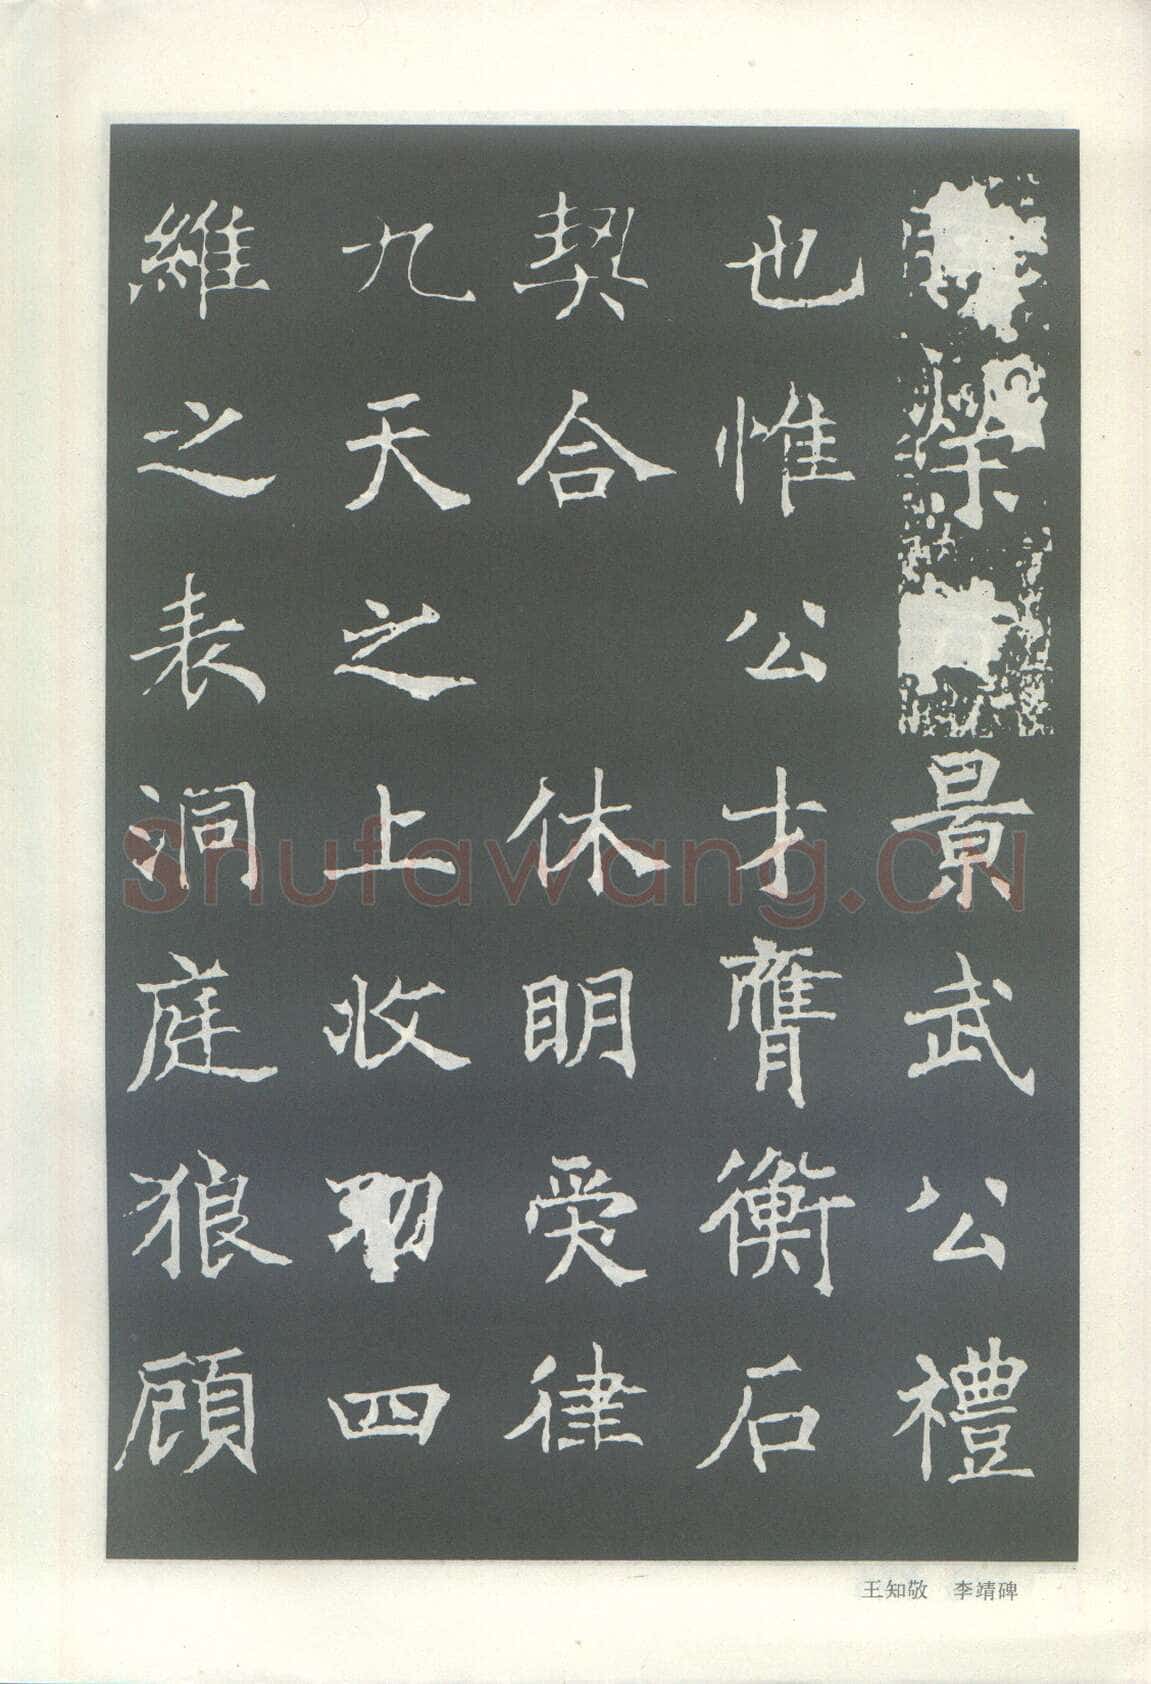 榮景武公禮
也惟公才膺衡石
契合休明爰律
九天之上收功四
維之表洞庭狼顧
王知敬 李靖碑
Shufawang.CN